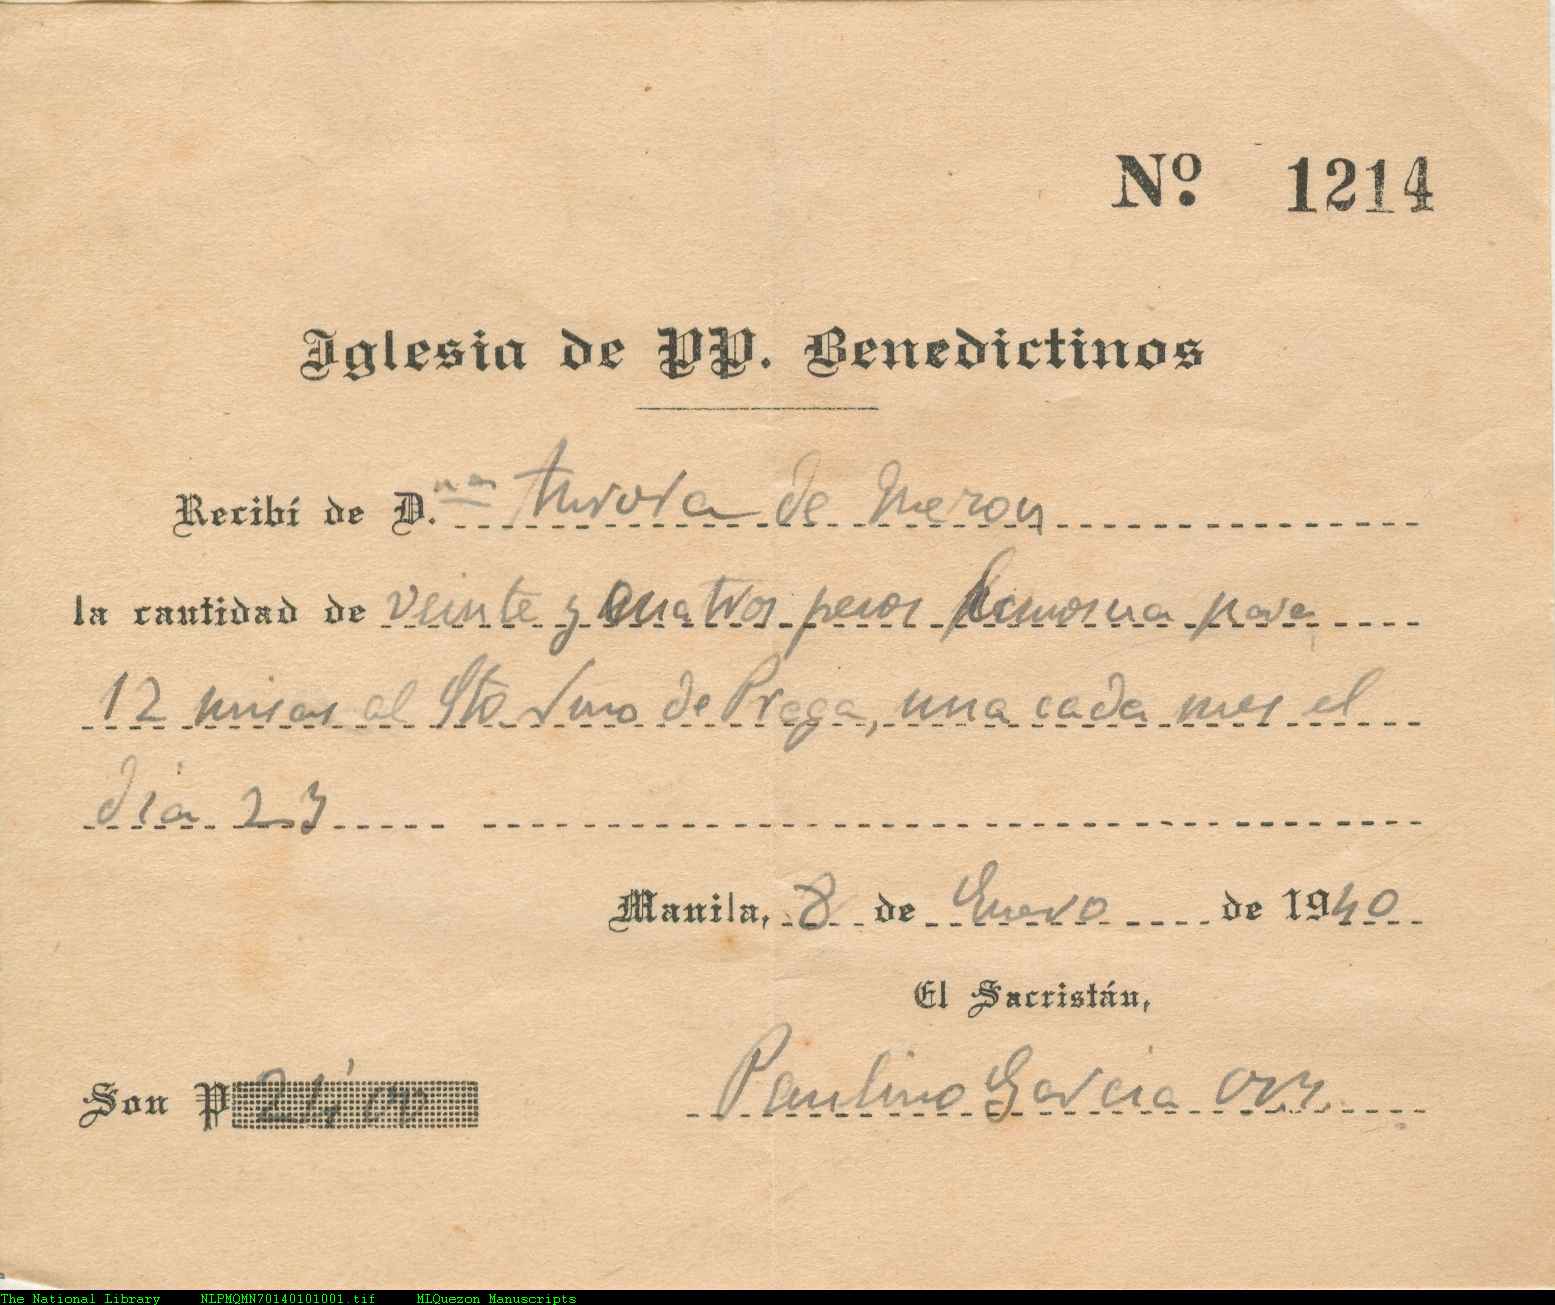 Nº. 1214
Iglesia de PP. Benedictinos
Recibí de D.ⁿᵃ Aurora de
la cantidad de veinte y cuatros pesos limosna para
12 misas al Sto Nino de Praga, una cada mes el
dia 23
Manila, 8 de Enero de 1940
El Sacristán,
Son P 24 00 Paulino Garcia
The National Library NLPMQMN70140101001.tif MLQuezon Manuscripts